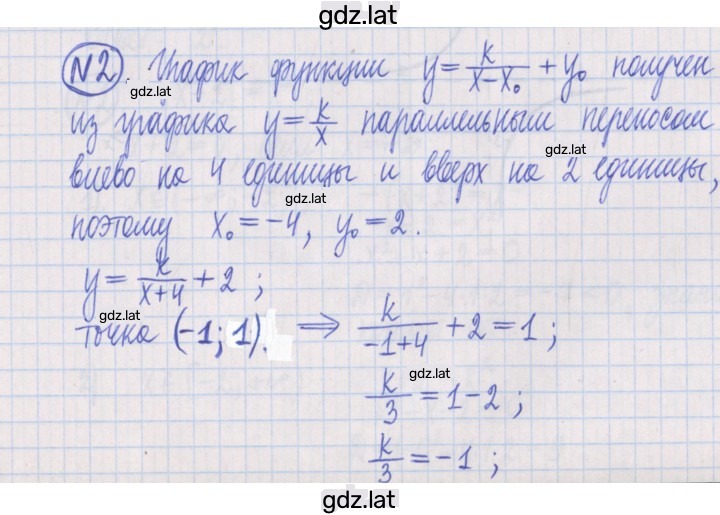 gdz.lat
N2. График функции y = k/(x-x₀) + y₀ получен
gdz.lat
из графика y = k/x параллельным переносом
влево на 4 единицы и вверх на 2 единицы,
gdz.lat
поэтому x₀ = -4, y₀ = 2.
gdz.lat
y = k/(x+4) + 2 ;
gdz.lat
точка (-1; 1). ⇒ k/(-1+4) + 2 = 1 ;
gdz.lat
k/3 = 1 - 2 ;
k/3 = -1 ;
gdz.lat